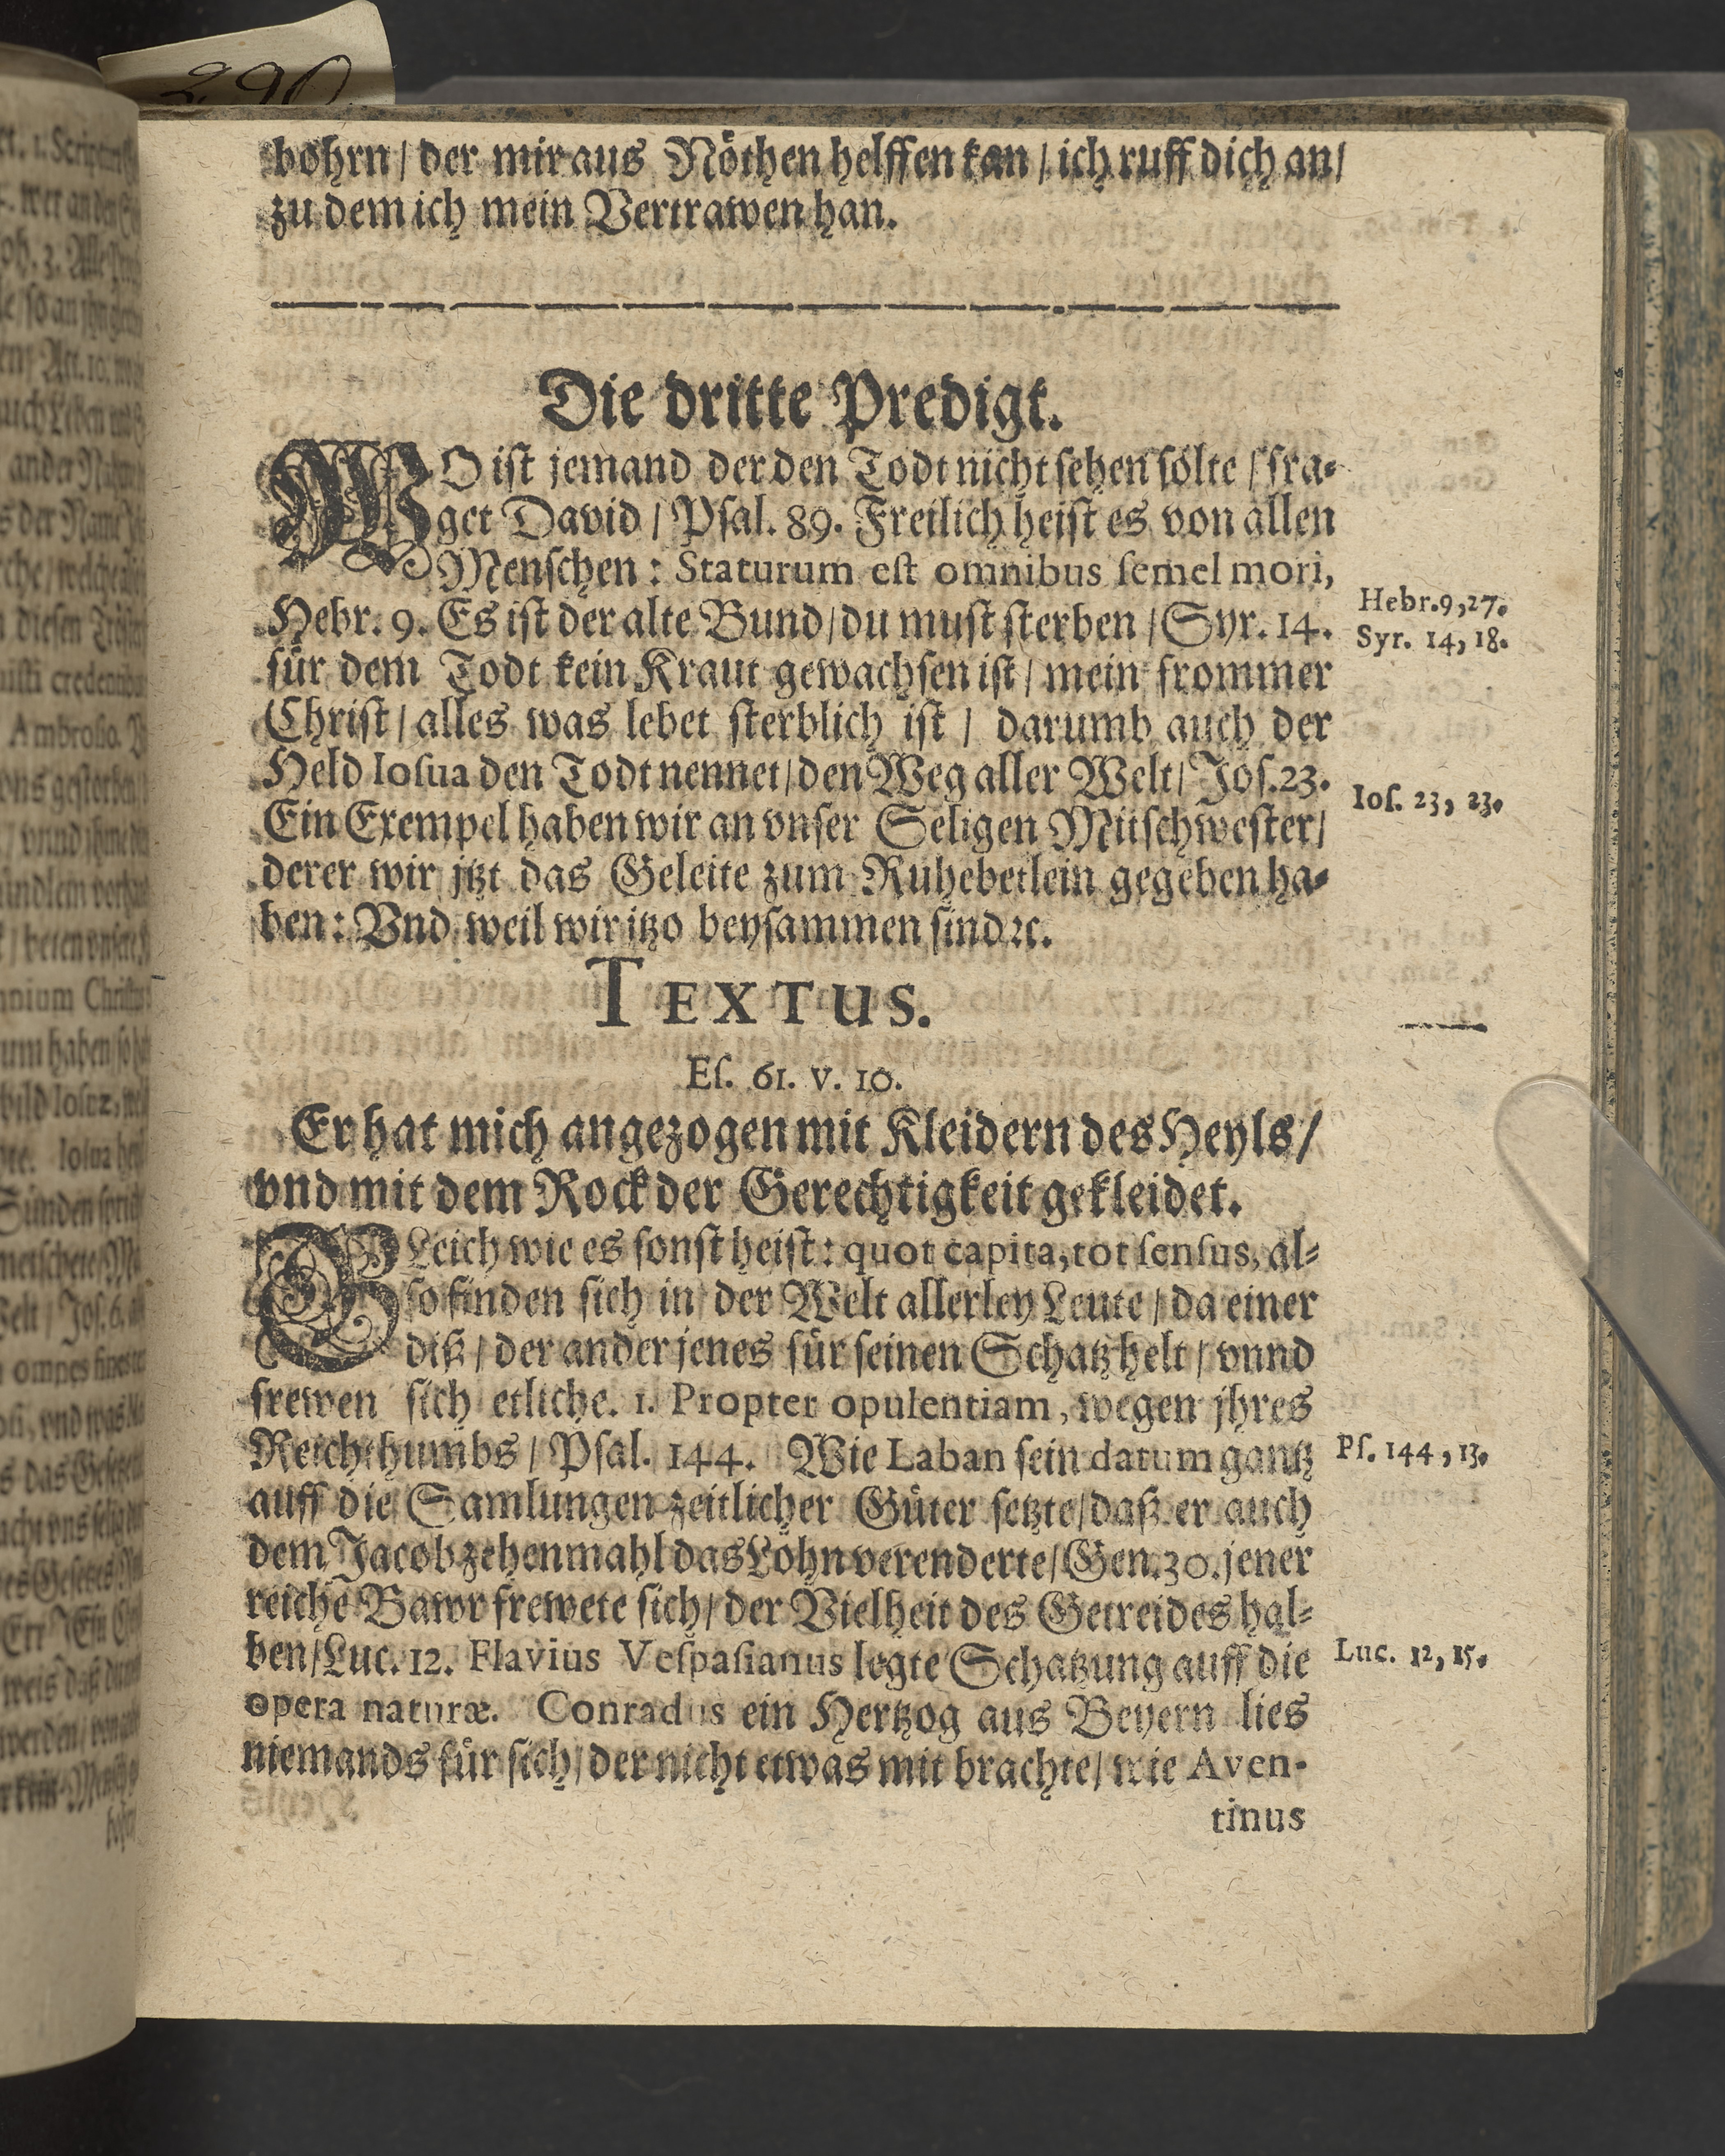 290
bohrn / der mir aus Nöthen helffen kan / ich ruff dich an /
zu dem ich mein Vertrawen han.
Die dritte Predigt.
WO ist jemand der den Todt nicht sehen sölte / fra-
get David / Psal. 89. Freilich heist es von allen
Menschen : Staturum est omnibus semel mori,
Hebr. 9. Es ist der alte Bund / du must sterben / Syr. 14.
Hebr. 9, 27.
Syr. 14, 18.
für dem Todt kein Kraut gewachsen ist / mein frommer
Christ / alles was lebet sterblich ist / darumb auch der
Held Iosua den Todt nennet / den Weg aller Welt / Jos. 23.
Ios. 23, 23.
Ein Exempel haben wir an vnser Seligen Mitschwester /
derer wir jtzt das Geleite zum Ruhebetlein gegeben ha-
ben : Vnd weil wir itzo beysammen sind ꝛc.
TEXTUS.
Es. 61. v. 10.
Er hat mich angezogen mit Kleidern des Heyls /
vnd mit dem Rock der Gerechtigkeit gekleidet.
GLeich wie es sonst heist : quot capita, tot sensus, al-
so finden sich in der Welt allerley Leute / da einer
diß / der ander jenes für seinen Schatz helt / vnnd
frewen sich etliche. 1. Propter opulentiam, wegen jhres
Reichthumbs / Psal. 144. Wie Laban sein datum gantz
Ps. 144, 13.
auff die Samlungen zeitlicher Güter setzte / daß er auch
dem Jacob zehenmahl das Lohn verenderte / Gen. 30. jener
reiche Bawr frewete sich / der Vielheit des Getreides hal-
ben / Luc. 12. Flavius Vespasianus legte Schatzung auff die
Luc. 12, 15.
opera naturæ. Conradus ein Hertzog aus Beyern lies
niemands für sich / der nicht etwas mit brachte / wie Aven-
tinus